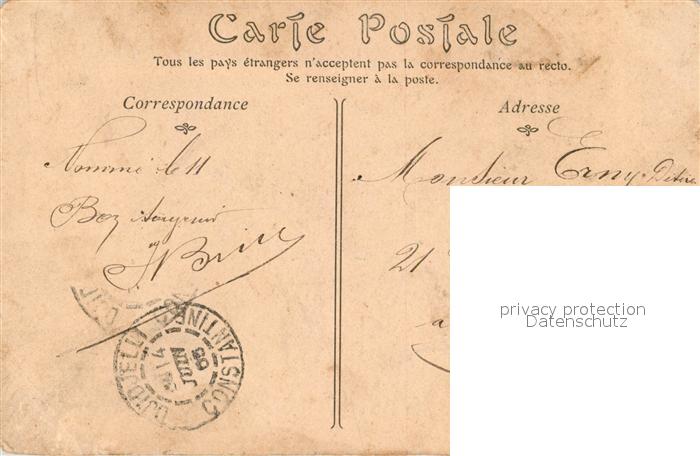 Carte Postale
Tous les pays étrangers n'acceptent pas la correspondance au recto.
Se renseigner à la poste.
Correspondance
Adresse
Nommé le 11
Monsieur Erny
21
a
DJIDJELLI
CONSTANTINE
JUIN
privacy protection
Datenschutz